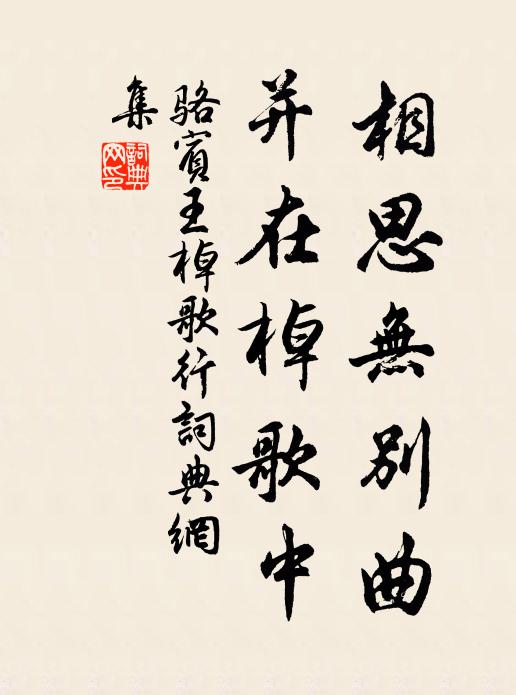 相思無別曲
并在棹歌中
駱賓王棹歌行詞典網
集
詞典網印